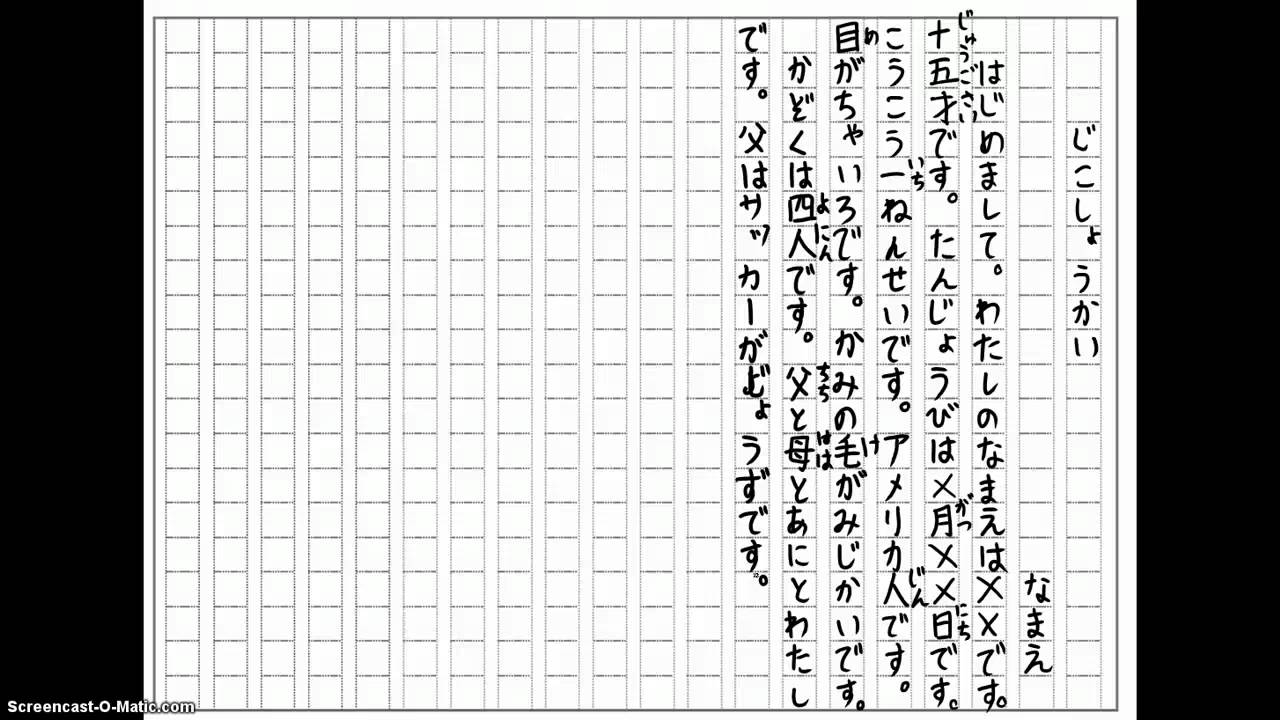 じこしょうかい
なまえ
はじめまして。わたしのなまえは××です。
十五才です。たんじょうびは×月××日です。
じゅうごさい
がつ
にち
こうこう一ねんせいです。アメリカ人です。
いち
じん
目がちゃいろです。かみの毛がみじかいです。
め
け
かぞくは四人です。父と母とあにとわたし
よにん
ちち
はは
です。父はサッカーがじょうずです。
Screencast-O-Matic.com